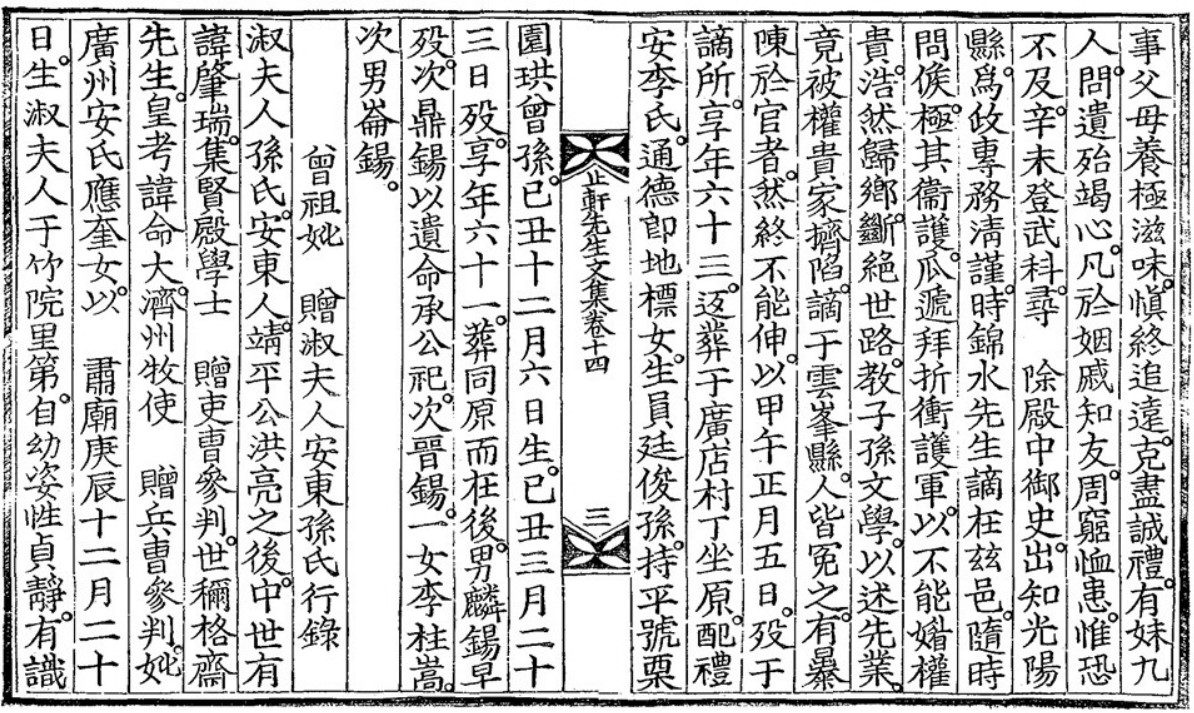 事父母養極滋味。愼終追遠。克盡誠禮。有妹九
人。問遺殆竭心。凡於姻戚知友。周窮恤患。惟恐
不及。辛未登武科。尋 除殿中御史。出知光陽
縣。爲政專務淸謹。時錦水先生謫在玆邑。隨時
問候。極其衞護。瓜遞拜折衝護軍。以不能媚權
貴。浩然歸鄕。斷絶世路。敎子孫文學。以述先業。
竟被權貴家擠陷。謫于雲峯縣。人皆寃之。有暴
陳於官者。然終不能伸。以甲午正月五日。歿于
謫所。享年六十三。返葬于廣店村丁坐原。配禮
安李氏。通德郎地標女。生員廷俊孫。持平號栗
止軒先生文集卷十四
三
園珙曾孫。己丑十二月六日生。己丑三月二十
三日歿。享年六十一。葬同原而在後。男麟錫早
歿。次鼎錫以遺命承公祀。次晉錫。一女李柱嵩。
次男崙錫。
曾祖妣 贈淑夫人安東孫氏行錄
淑夫人孫氏。安東人。靖平公洪亮之後。中世有
諱肇瑞。集賢殿學士 贈吏曹參判。世稱格齋
先生。皇考諱命大。濟州牧使 贈兵曹參判。妣
廣州安氏應奎女。以 肅廟庚辰十二月二十
日。生淑夫人于竹院里第。自幼姿性貞靜。有識